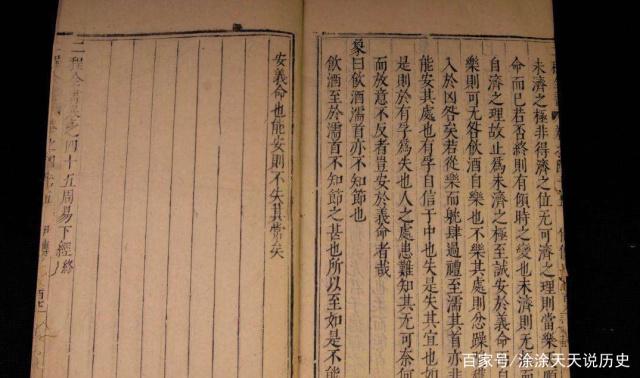 未濟之極非得濟之位无可濟之理則當樂
命而已若否終則有傾時之變也未濟則无
自濟之理故止爲未濟之極至誠安於義命
樂則可无咎飲酒自樂也不樂其處則忿躁
入於凶咎矣若從樂而躭肆過禮至濡其首亦非
能安其處也有孚自信于中也失是失其宜也如
是則於有孚爲失也人之處患難知其无可奈何
而放意不反者豈安於義命者哉
象曰飲酒濡首亦不知節也
飲酒至於濡首不知節之甚也所以至如是不能
安義命也能安則不失其常矣
二程全書卷之四十五周易下經終
百家号/涂涂天天说历史